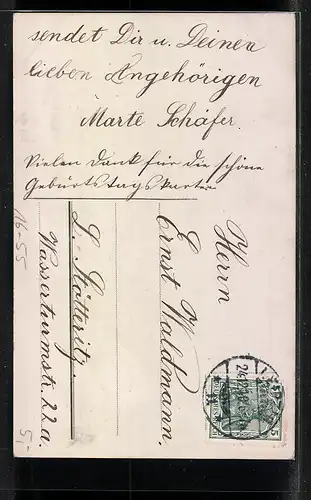 sendet Dir u. Deinen
lieben Angehörigen
Marte Schäfer.
Vielen Dank für die schöne
Geburtstagskarte
Herrn
Ernst Waldmann.
L.-Stötteritz.
Wasserturmstr. 22a.
16-55
5,-
5